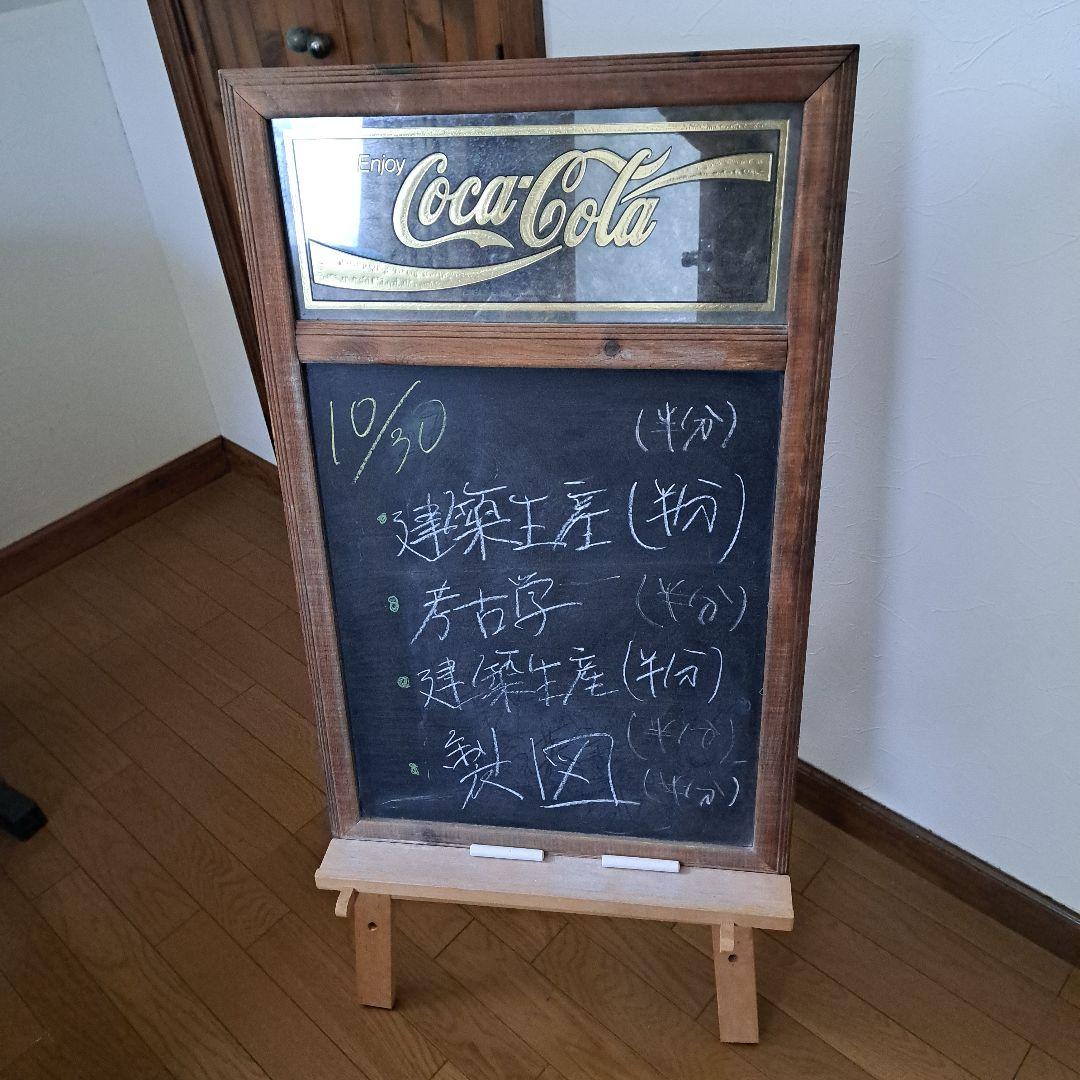 Enjoy Coca-Cola
10/30 (半分)
建築生産 (半分)
考古学 (半分)
建築生産 (半分)
製図 (半分)